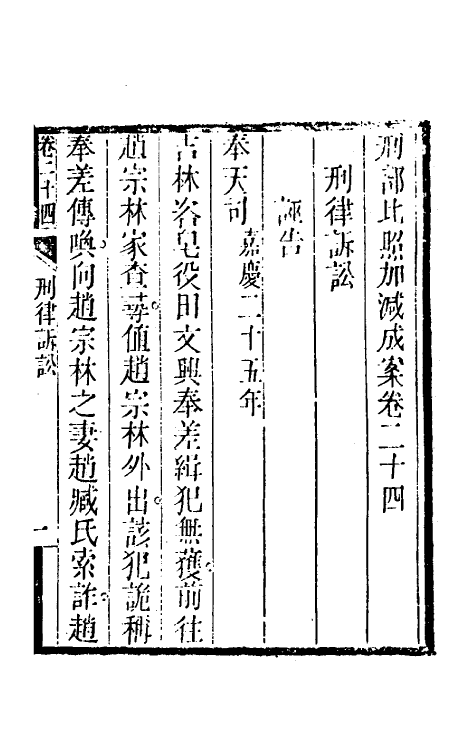 刑部比照加減成案卷二十四
刑律訴訟
誣告
奉天司 嘉慶二十五年
吉林咨皂役田文興奉差緝犯無獲前往
趙宗林家查尋値趙宗林外出該犯詭稱
奉差傳喚向趙宗林之妻趙臧氏索詐趙
卷二十四 刑律訴訟 一